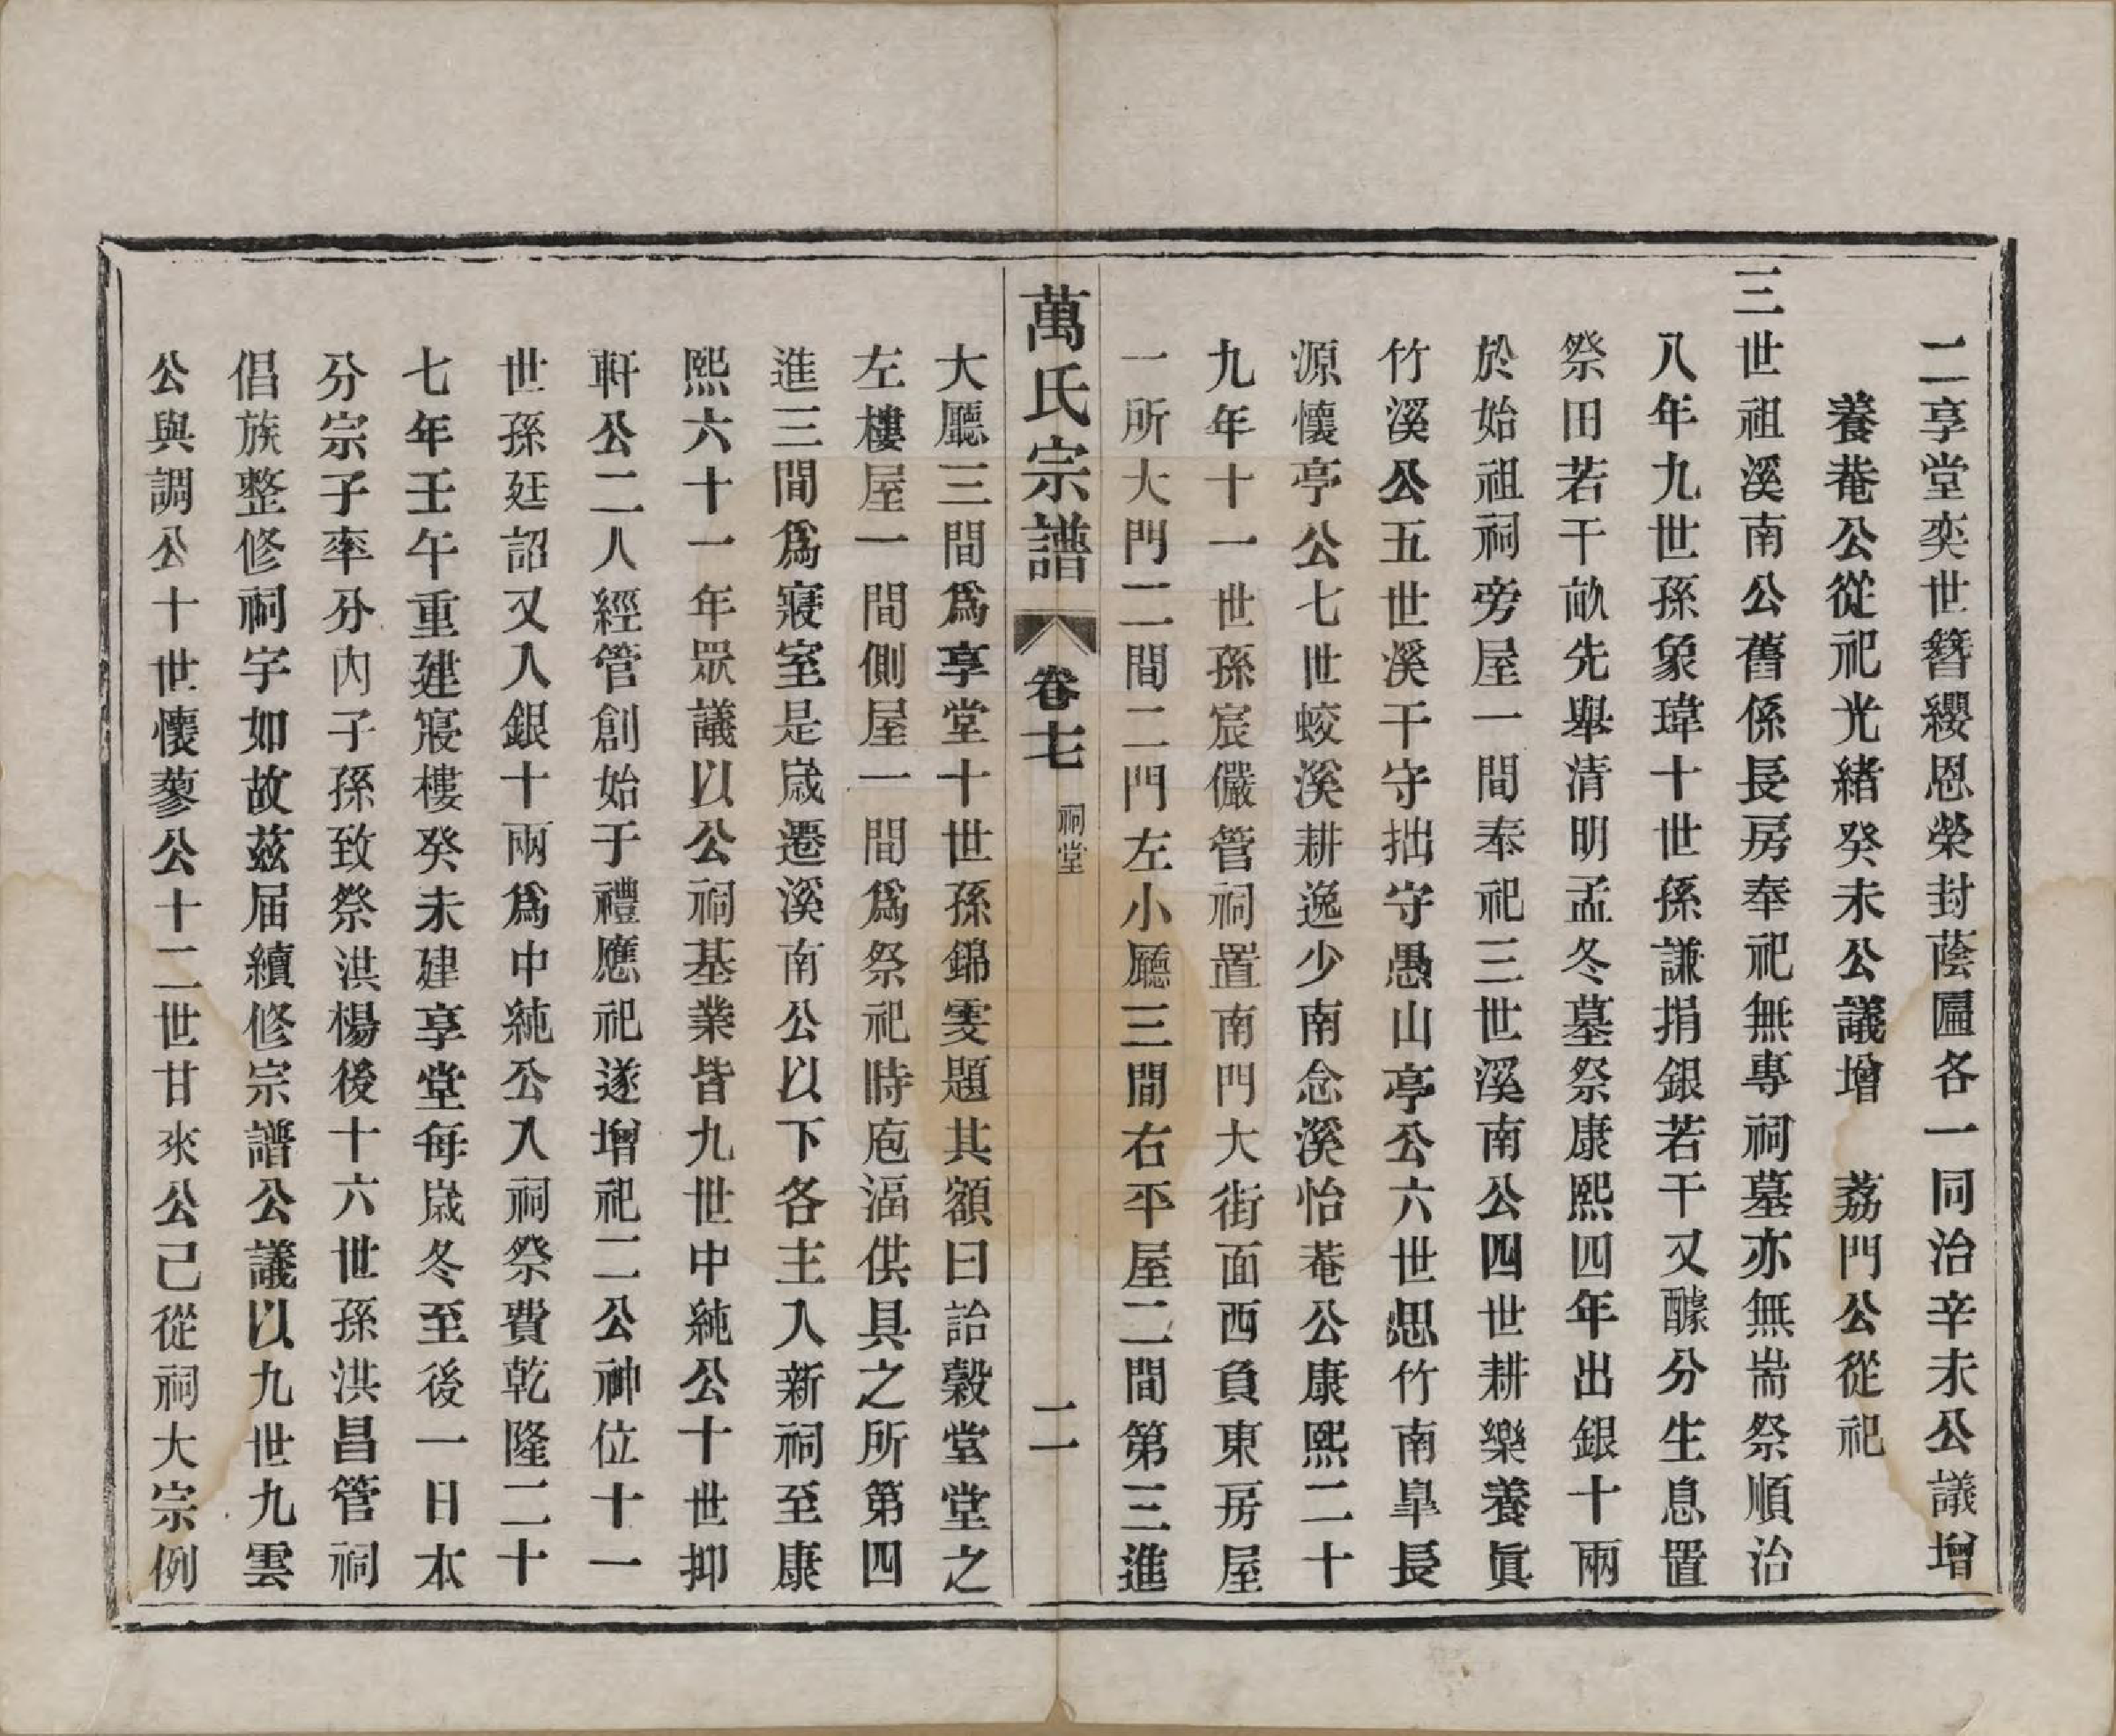 二享堂奕世簪纓恩榮封蔭匾各一同治辛未公議增
養菴公從祀光緖癸未公議增　荔門公從祀
三世祖溪南公舊係長房奉祀無專祠墓亦無耑祭順治
八年九世孫象瑋十世孫謙捐銀若干又醵分生息置
祭田若干畝先舉清明孟冬墓祭康熙四年出銀十兩
於始祖祠旁屋一間奉祀三世溪南公四世耕樂養眞
竹溪公五世溪干守拙守愚山亭公六世思竹南臯長
源懷亭公七世蛟溪耕逸少南念溪怡菴公康熙二十
九年十一世孫宸儼管祠置南門大街面西負東房屋
一所大門二間二門左小廳三間右平屋二間第三進
萬氏宗譜　卷七　祠堂　二
大廳三間爲享堂十世孫錦雯題其額曰詒榖堂堂之
左樓屋一間側屋一間爲祭祀時庖湢供具之所第四
進三間爲寢室是歲遷溪南公以下各主入新祠至康
熙六十一年眾議以公祠基業皆九世中純公十世抑
軒公二人經管創始于禮應祀遂增祀二公神位十一
世孫廷詔又入銀十兩爲中純公入祠祭費乾隆二十
七年壬午重建寢樓癸未建享堂每歲冬至後一日本
分宗子率分內子孫致祭洪楊後十六世孫洪昌管祠
倡族整修祠宇如故茲届續修宗譜公議以九世九雲
公與調公十世懷蓼公十二世甘來公己從祠大宗例